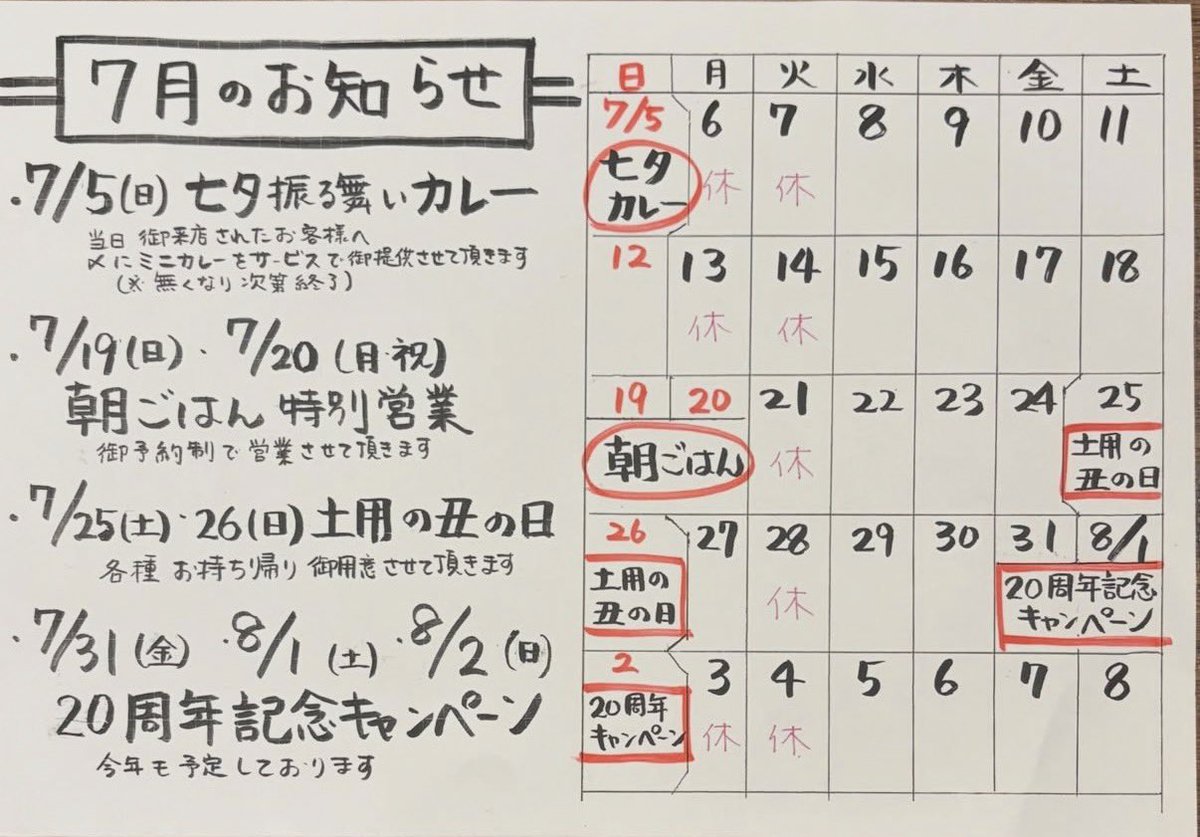 7月のお知らせ
・7/5(日) 七夕振る舞いカレー
当日 御来店されたお客様へ
〆にミニカレーをサービスで御提供させて頂きます
(※ 無くなり次第終了)
・7/19(日)・7/20(月・祝)
朝ごはん 特別営業
御予約制で営業させて頂きます
・7/25(土)・26(日)土用の丑の日
各種 お持ち帰り 御用意させて頂きます
・7/31(金)・8/1(土)・8/2(日)
20周年記念キャンペーン
今年も予定しております
日 月 火 水 木 金 土
7/5 6 7 8 9 10 11
七夕
カレー 休 休
12 13 14 15 16 17 18
休 休
19 20 21 22 23 24 25
朝ごはん 休 土用の
丑の日
26 27 28 29 30 31 8/1
土用の
丑の日 休 20周年記念
キャンペーン
2 3 4 5 6 7 8
20周年
キャンペーン 休 休